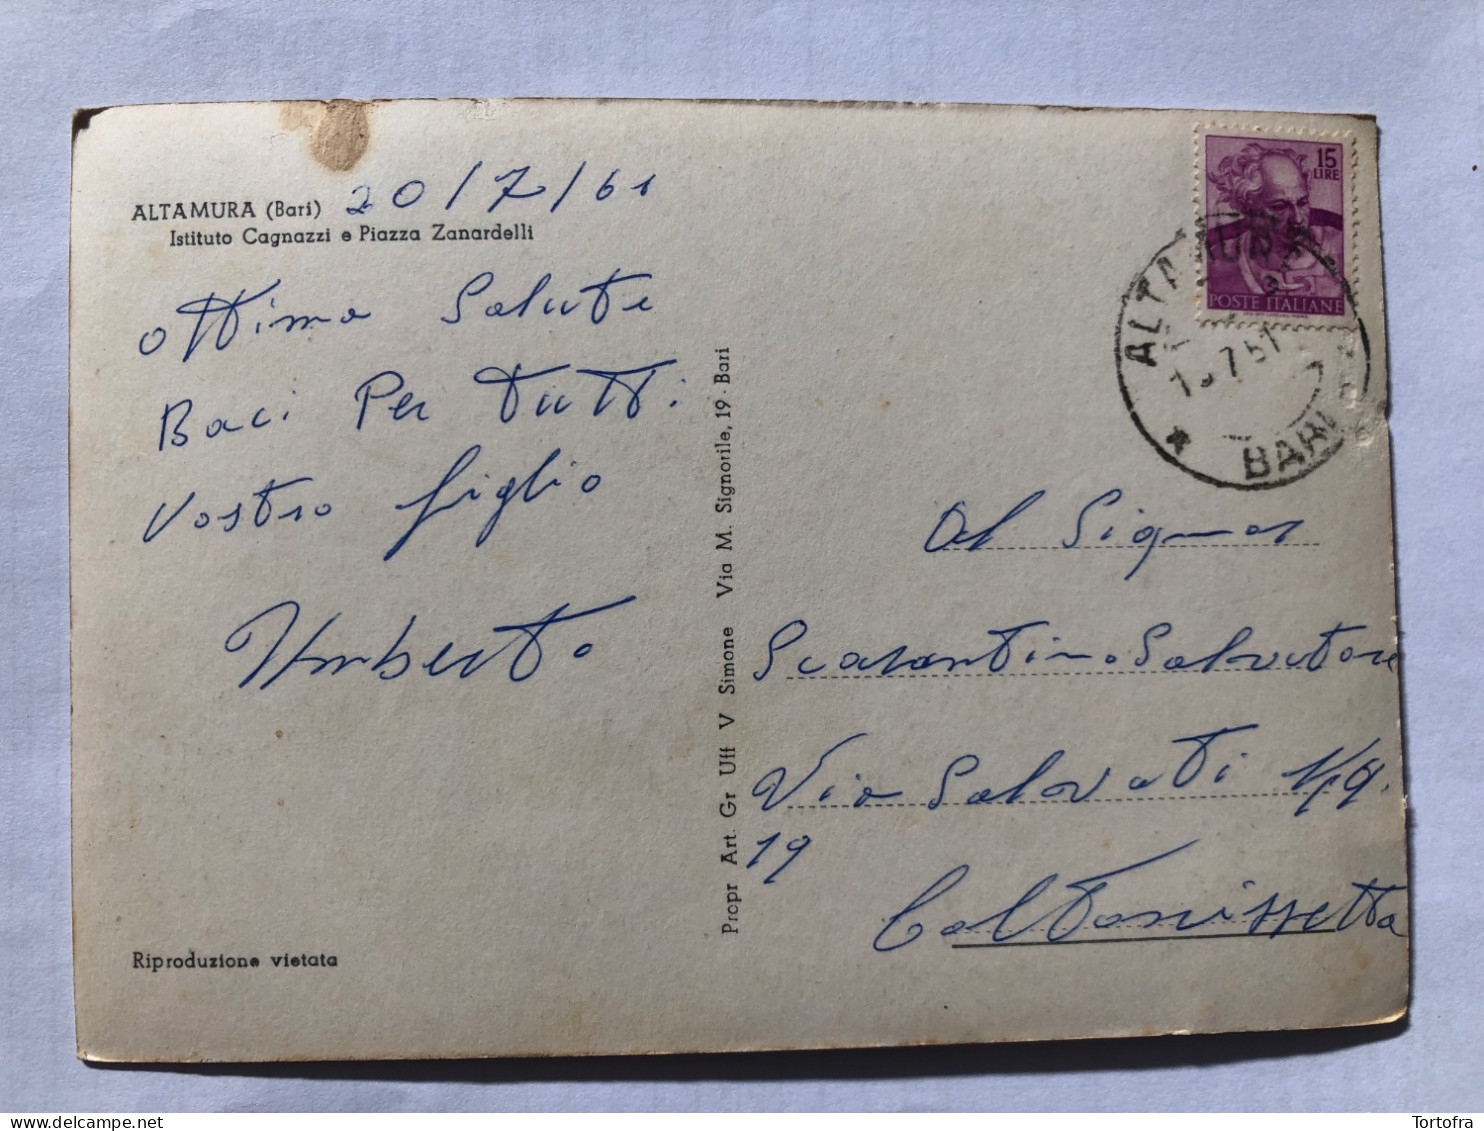 ALTAMURA (Bari) 20/7/61
Istituto Cagnazzi e Piazza Zanardelli
Ottima Salute
Baci Per Tutti
Vostro figlio
Umberto
Riproduzione vietata
Propr Art. Gr Uff V Simone Via M. Signorile, 19 - Bari
15
LIRE
POSTE ITALIANE
ALTAMURA
BARI
Al Signor
Scarantino Salvatore
Via Salvati
19
Caltanissetta
Tortofra